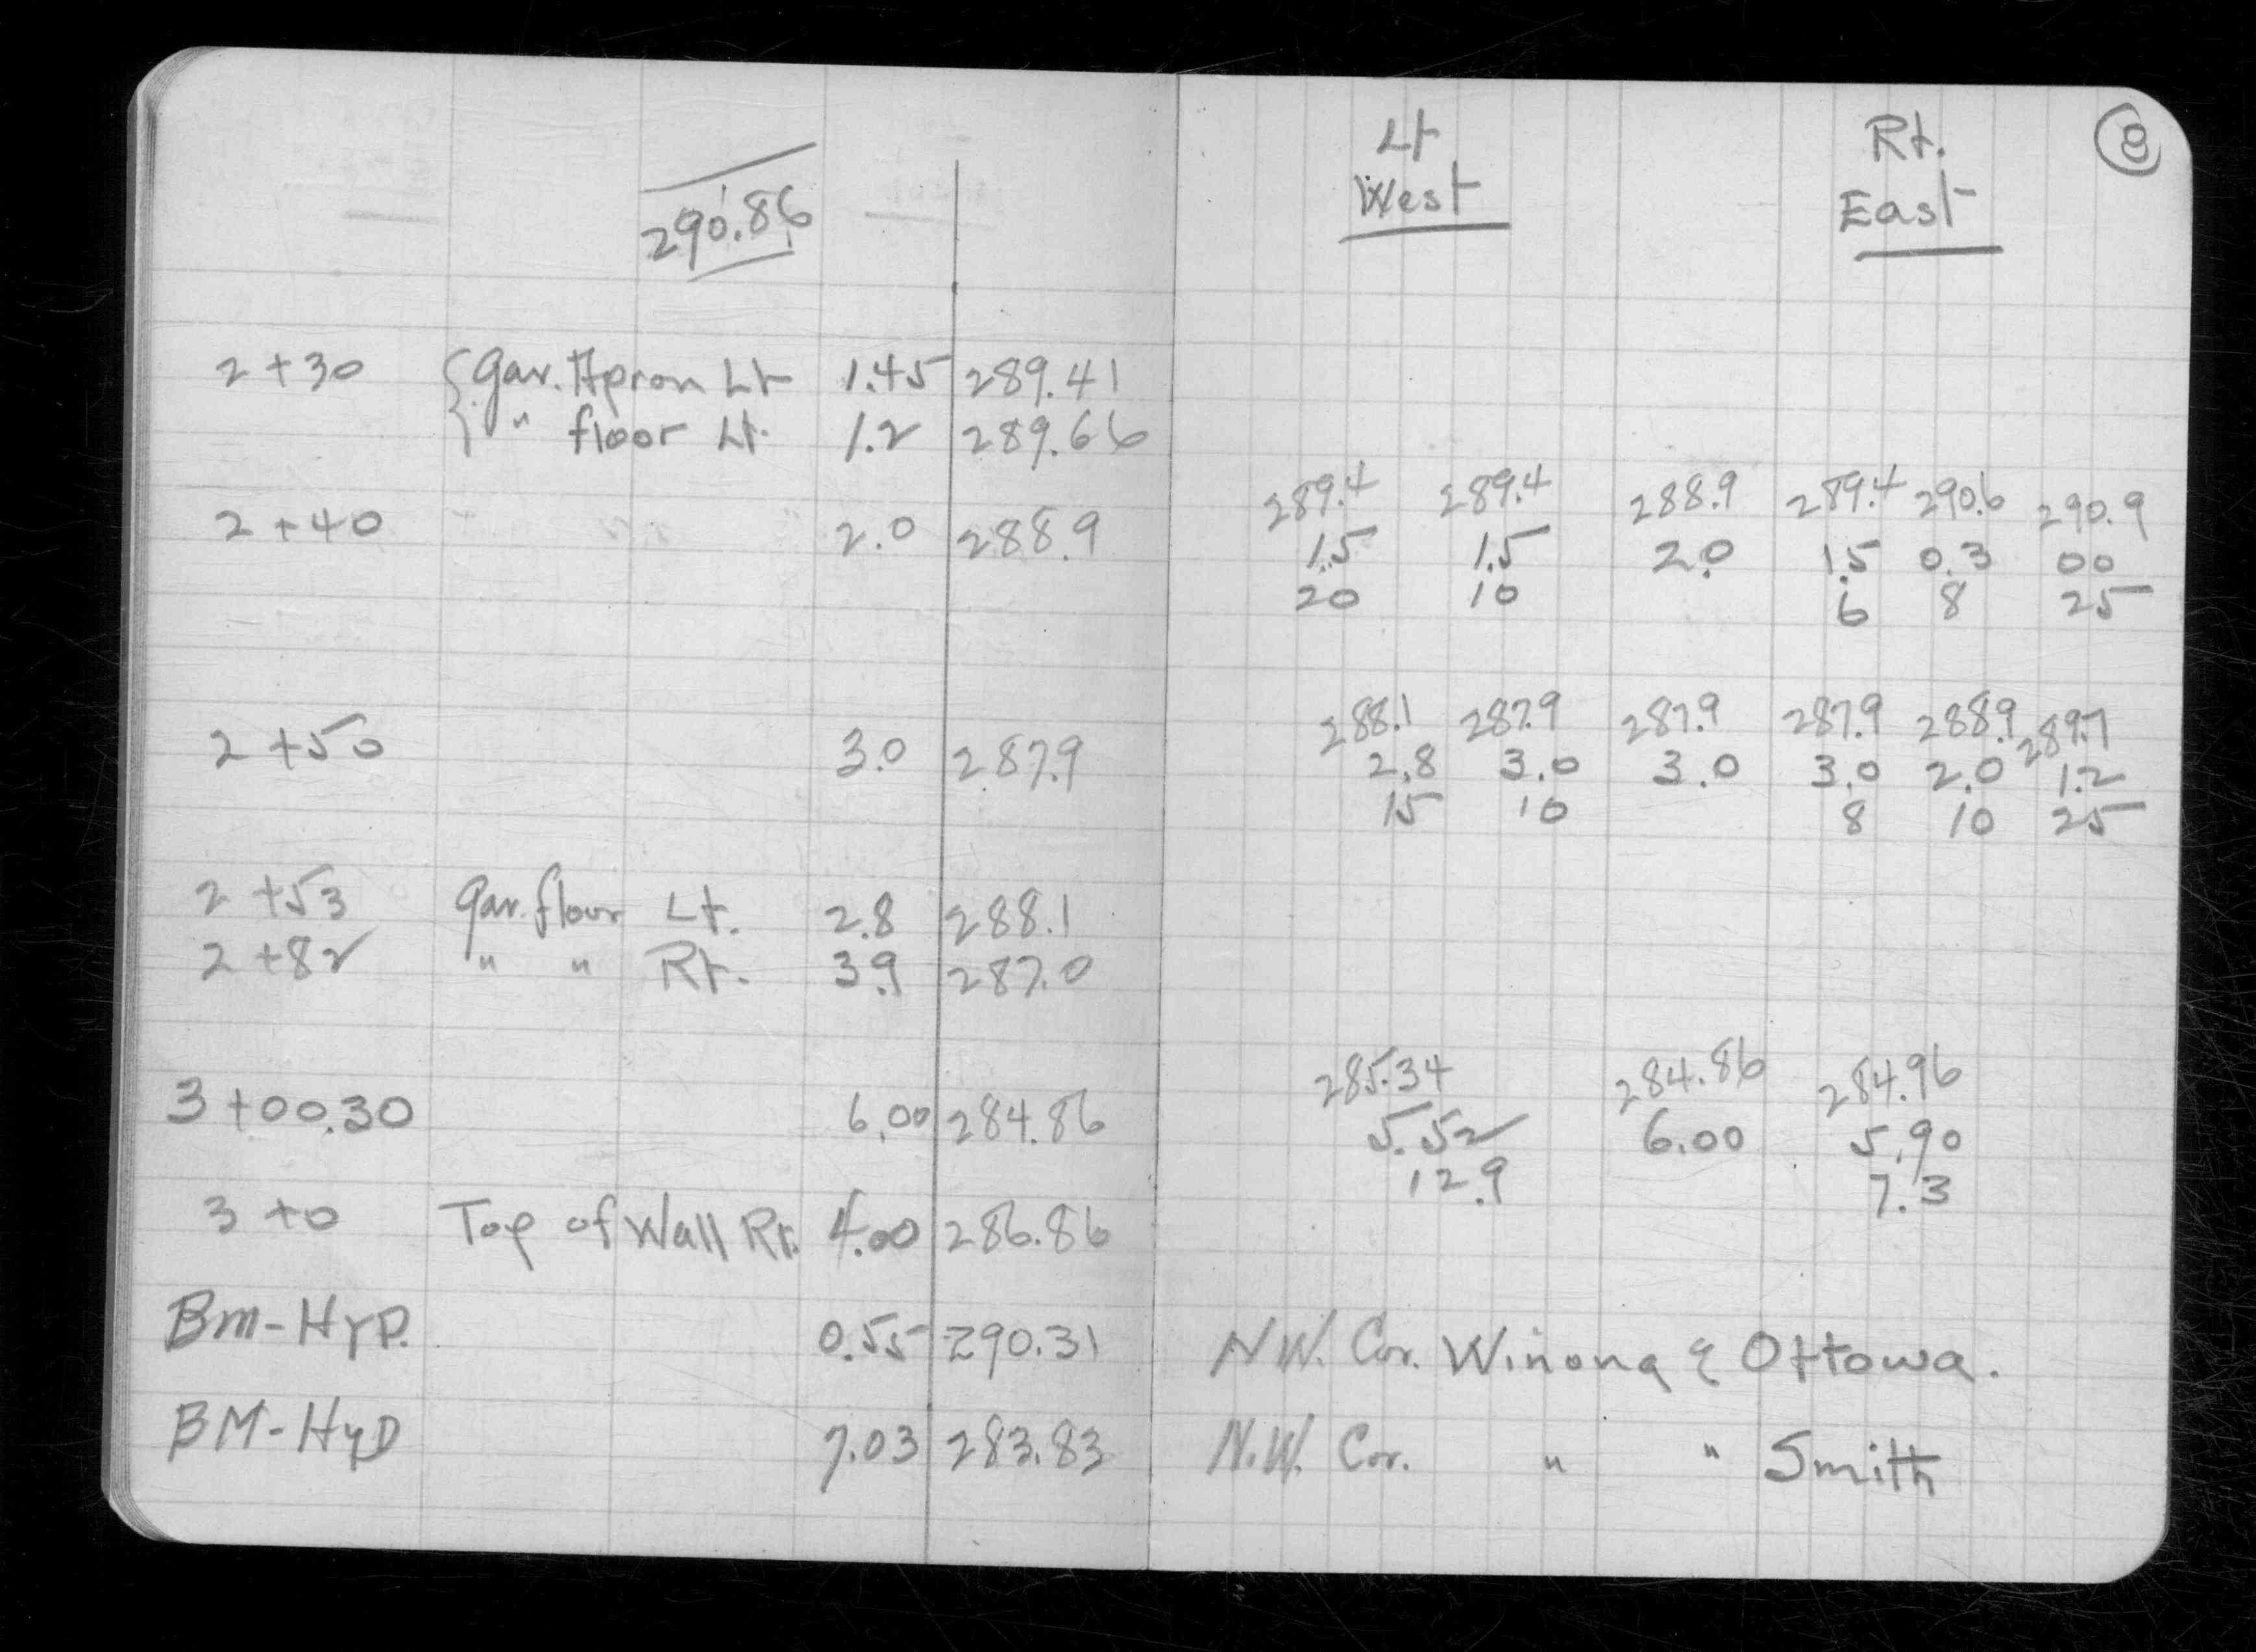 Lt Rt. 8
290.86 West East
2+30 {Gav. Apron Lt 1.45 289.41
" floor Lt. 1.2 289.66
289.4 289.4 288.9 289.4 290.6 290.9
2+40 2.0 288.9 1.5 1.5 2.0 1.5 0.3 00
20 10 6 8 25
288.1 287.9 287.9 287.9 288.9 289.7
2+50 3.0 287.9 2.8 3.0 3.0 3.0 2.0 1.2
15 10 8 10 25
2+53 Gav. floor Lt. 2.8 288.1
2+82 " " Rt. 3.9 287.0
285.34 284.86 284.96
3+00.30 6.00 284.86 5.52 6.00 5.90
12.9 7.3
3+0 Top of Wall Rt. 4.00 286.86
Bm-Hyd. 0.55 290.31 N.W. Cor. Winona & Ottowa.
BM-HyD 7.03 283.83 N.W. Cor. " " Smith